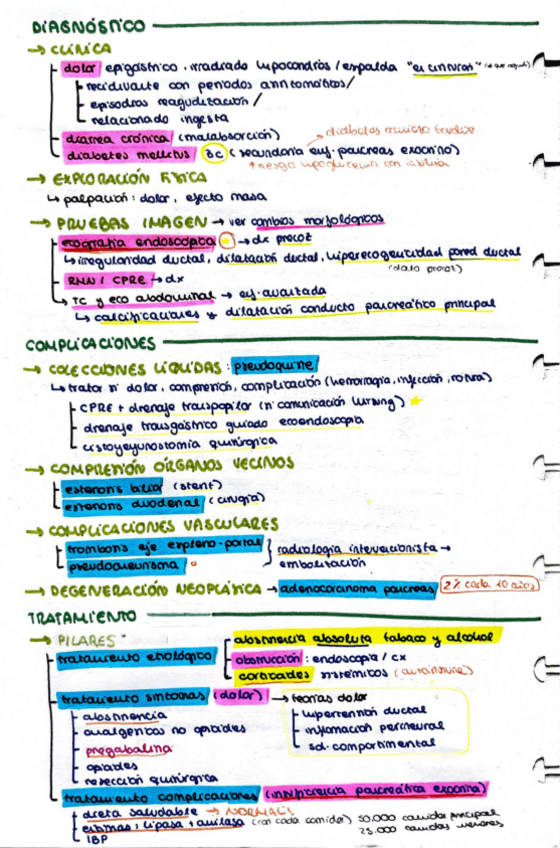 DIAGNÓSTICO
→ CLÍNICA
dolor epigástrico, irradiado hipocondrios / espalda "en cinturón"
recidivante con periodos asintomáticos /
episodios reagudización /
relacionado ingesta
diarrea crónica (malabsorción)
diabetes mellitus 3c (secundaria enf. páncreas exocrino)
→ EXPLORACIÓN FÍSICA
↳ palpación: dolor, efecto masa
→ PRUEBAS IMAGEN → ver cambios morfológicos
ecografía endoscópica → dx precoz
↳ irregularidad ductal, dilatación ductal, hiperecogenicidad pared ductal
(dato precoz)
RMN / CPRE → dx
↳ TC y eco abdominal → enf. avanzada
↳ calcificaciones y dilatación conducto pancreático principal
COMPLICACIONES
→ COLECCIONES LÍQUIDAS: pseudoquiste
↳ tratar si dolor, compresión, complicación (hemorragia, infección, rotura)
CPRE + drenaje transpapilar (si comunicación Wirsung)
drenaje transgástrico guiado ecoendoscopia
cistoyeyunostomía quirúrgica
→ COMPRESIÓN ÓRGANOS VECINOS
estenosis biliar (stent)
estenosis duodenal (cirugía)
→ COMPLICACIONES VASCULARES
trombosis eje espleno-portal
pseudoaneurisma
radiología intervencionista →
embolización
→ DEGENERACIÓN NEOPLÁSICA → adenocarcinoma páncreas (2% cada 10 años)
TRATAMIENTO
→ PILARES
tratamiento etiológico
abstinencia absoluta tabaco y alcohol
obstrucción: endoscopia / cx
corticoides sistémicos (autoinmune)
tratamiento síntomas (dolor) → teorías dolor
abstinencia
analgésicos no opiáceos
pregabalina
opiáceos
resección quirúrgica
hipertensión ductal
inflamación perineural
sd. compartimental
tratamiento complicaciones (insuficiencia pancreática exocrina)
dieta saludable → NORMAL
enzimas: lipasa + amilasa (con cada comida) 50.000 comidas principal
25.000 comidas menores
IBP